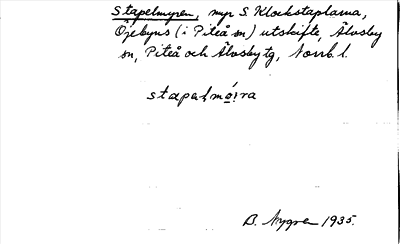 Stapelmyren, myr S. Klockstaplarna,
Öjebyns (i Piteå sn) utskifte, Älvsby
sn, Piteå och Älvsby tg, Norrb. l.
B. Nygren 1935.